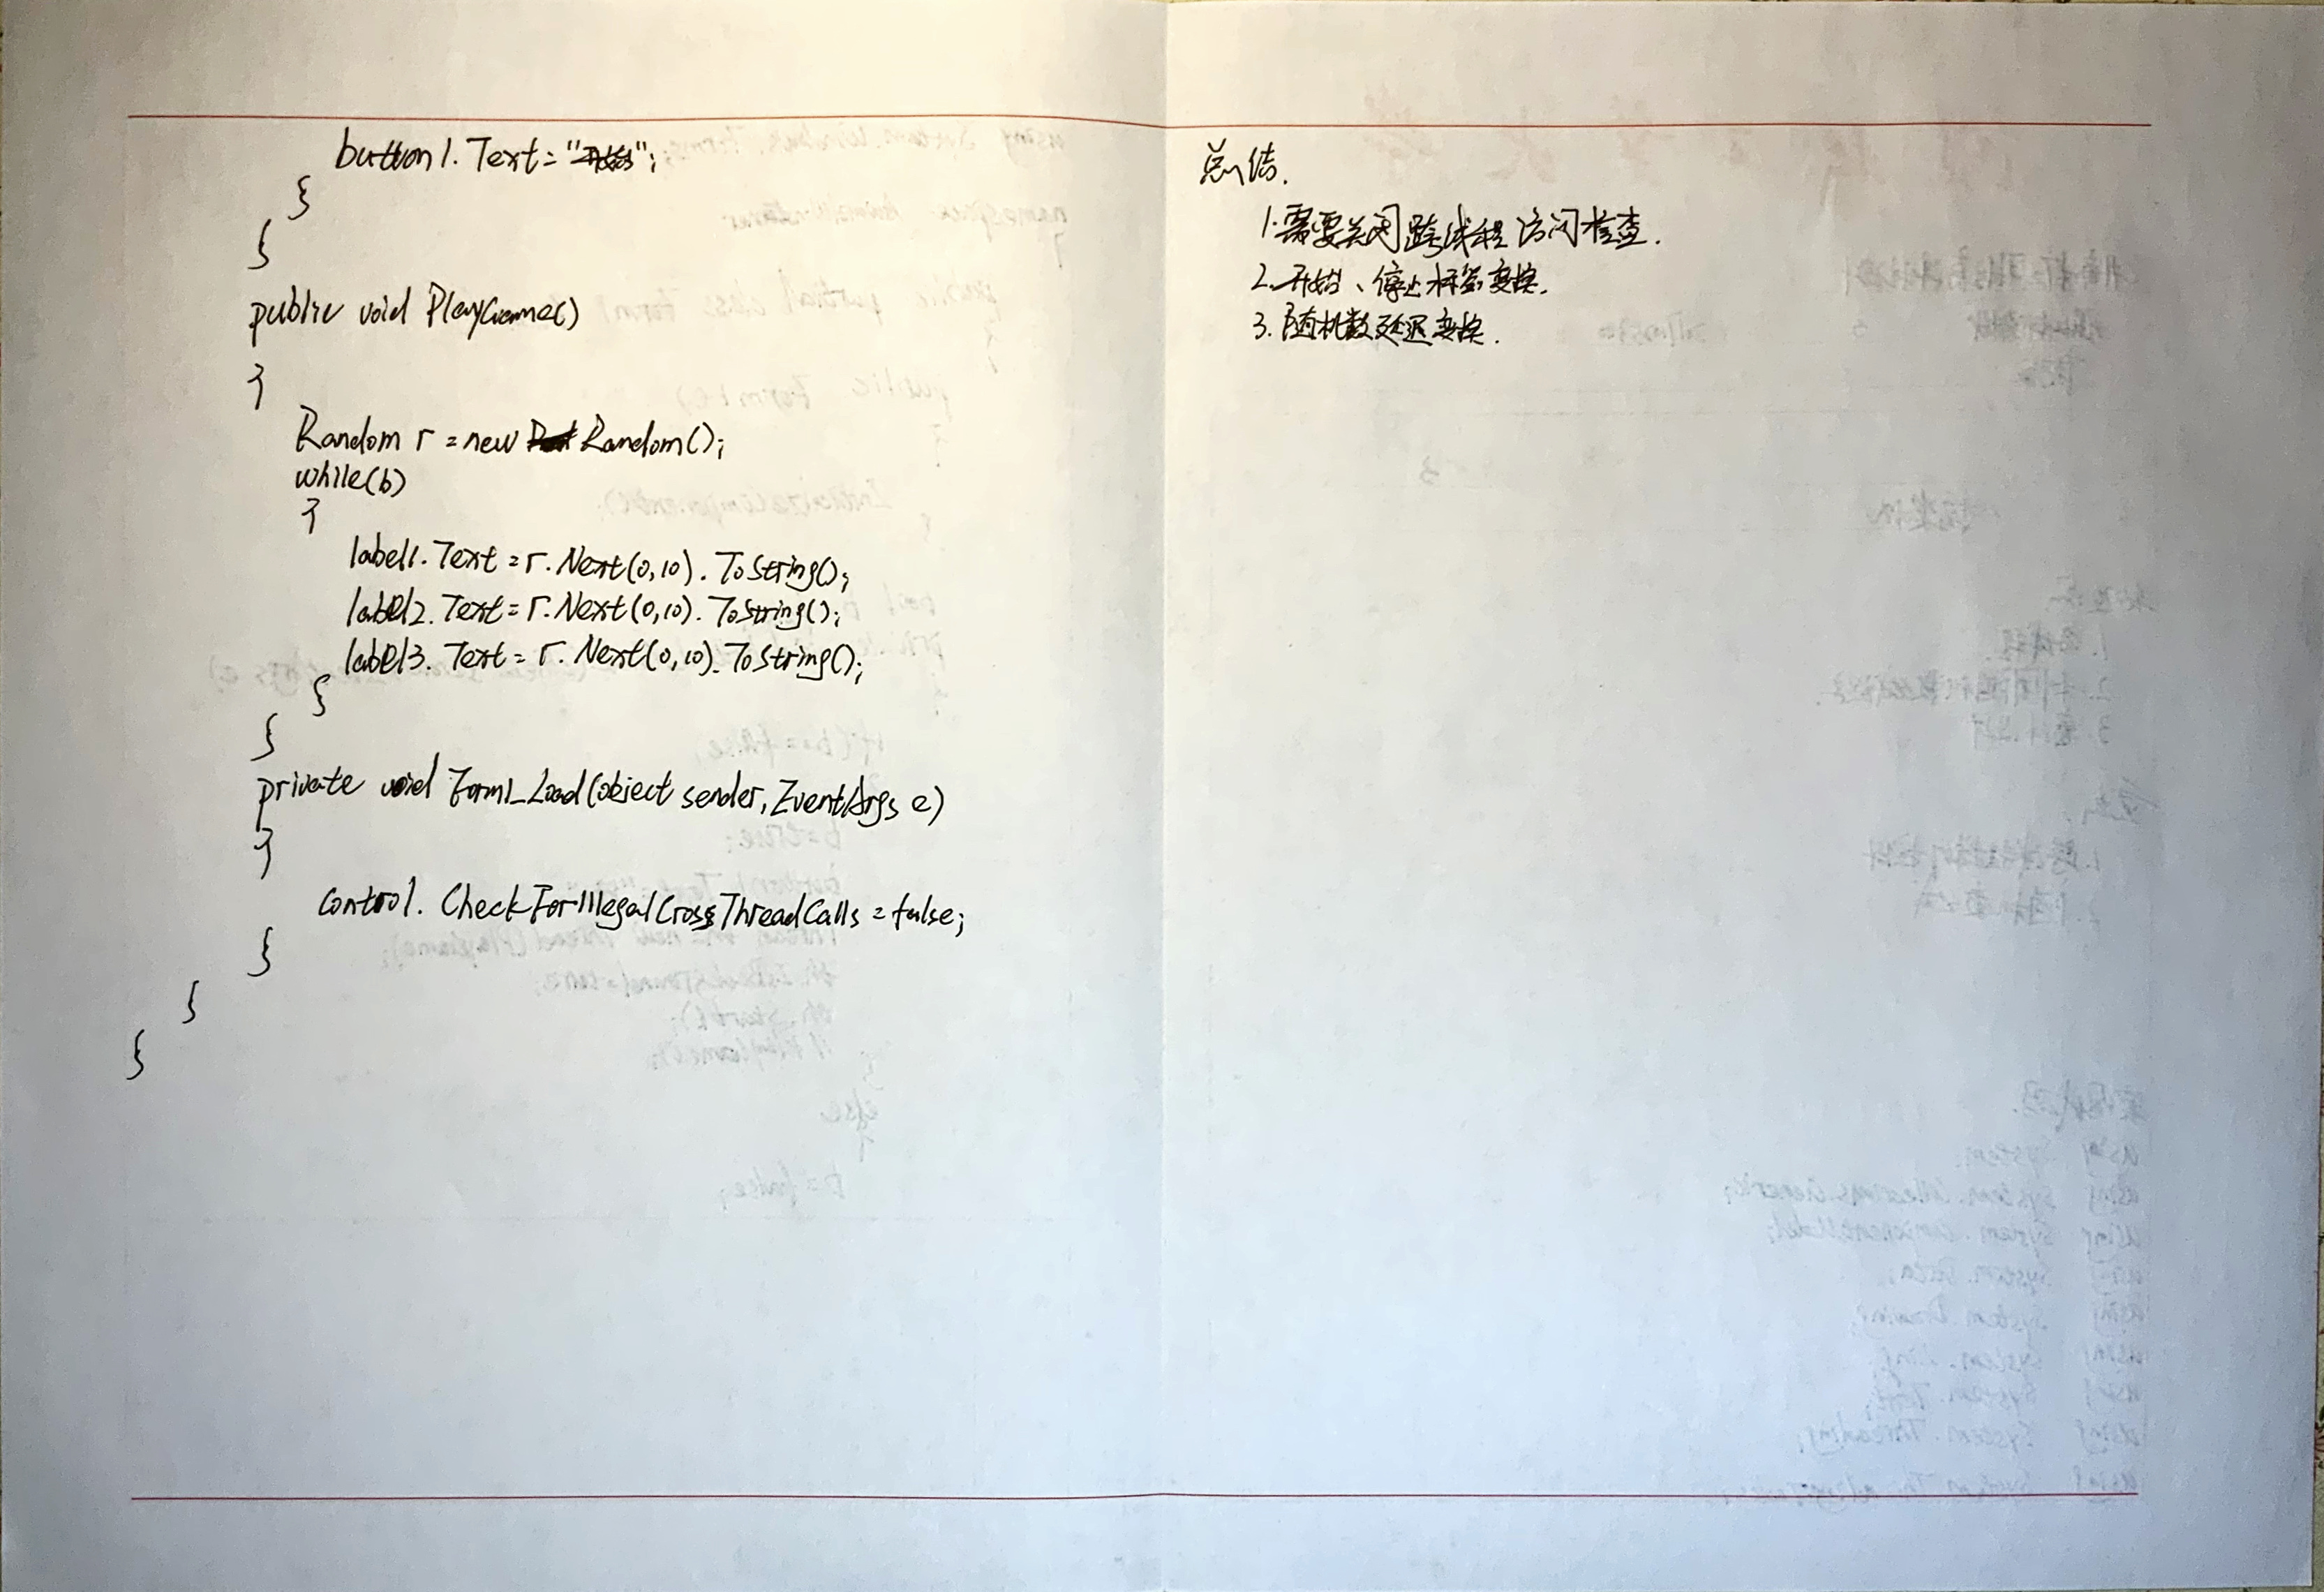 button1.Text="开始";
}
}
public void PlayGame()
{
Random r = new Random();
while(b)
{
label1.Text = r.Next(0,10).ToString();
label2.Text = r.Next(0,10).ToString();
label3.Text = r.Next(0,10).ToString();
}
}
private void Form1_Load(object sender, EventArgs e)
{
Control.CheckForIllegalCrossThreadCalls = false;
}
}
}
总结.
1.需要关闭跨线程访问检查.
2.开始、停止标签变换.
3.随机数延迟变换.